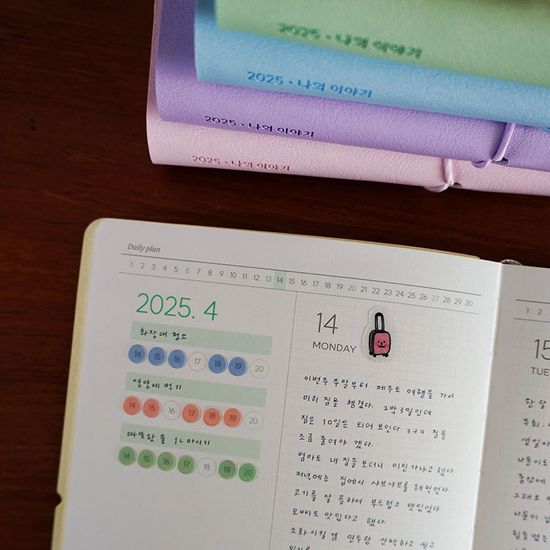 2025 · 나의 이야기
2025 · 나의 이야기
2025 · 나의 이야기
2025 · 나의 이야기
Daily plan
1 2 3 4 5 6 7 8 9 10 11 12 13 14 15 16 17 18 19 20 21 22 23 24 25 26 27 28 29 30
2025. 4
화장대 청소
14 15 16 17 18 19 20
영양제 먹기
14 15 16 17 18 19 20
따뜻한 물 1L 마시기
14 15 16 17 18 19 20
14
MONDAY
이번주 주말부터 제주도 여행을 가서
미리 짐을 챙겼다. 2박 3일인데
짐은 10일은 되어 보인다 ㅋㅋㅋ 짐을
조금 줄여야 겠다.
엄마도 내 짐을 보더니 이민가냐고 했다.
저녁에는 집에서 샤브샤브를 해먹었다.
고기를 잘 골라서 부드럽고 맛있었다
오빠도 맛있다고 했다.
소화시킬 겸 산책하고 씻고
15
TUE
한 달